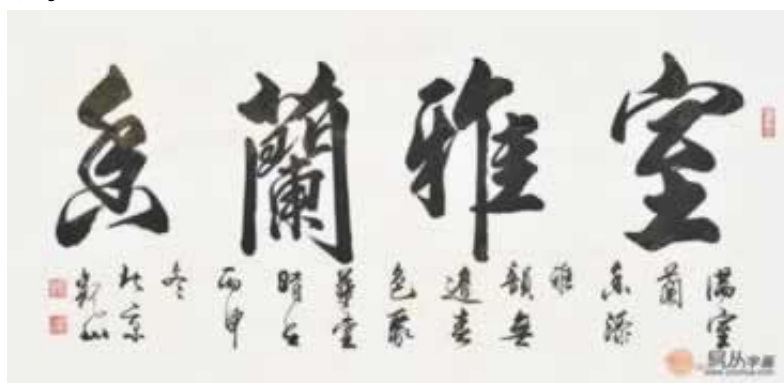 室雅蘭香
满室
蘭
香添
雅
韻無
邊春
色聚
華堂
時在
丙申
冬
於京
易从字画